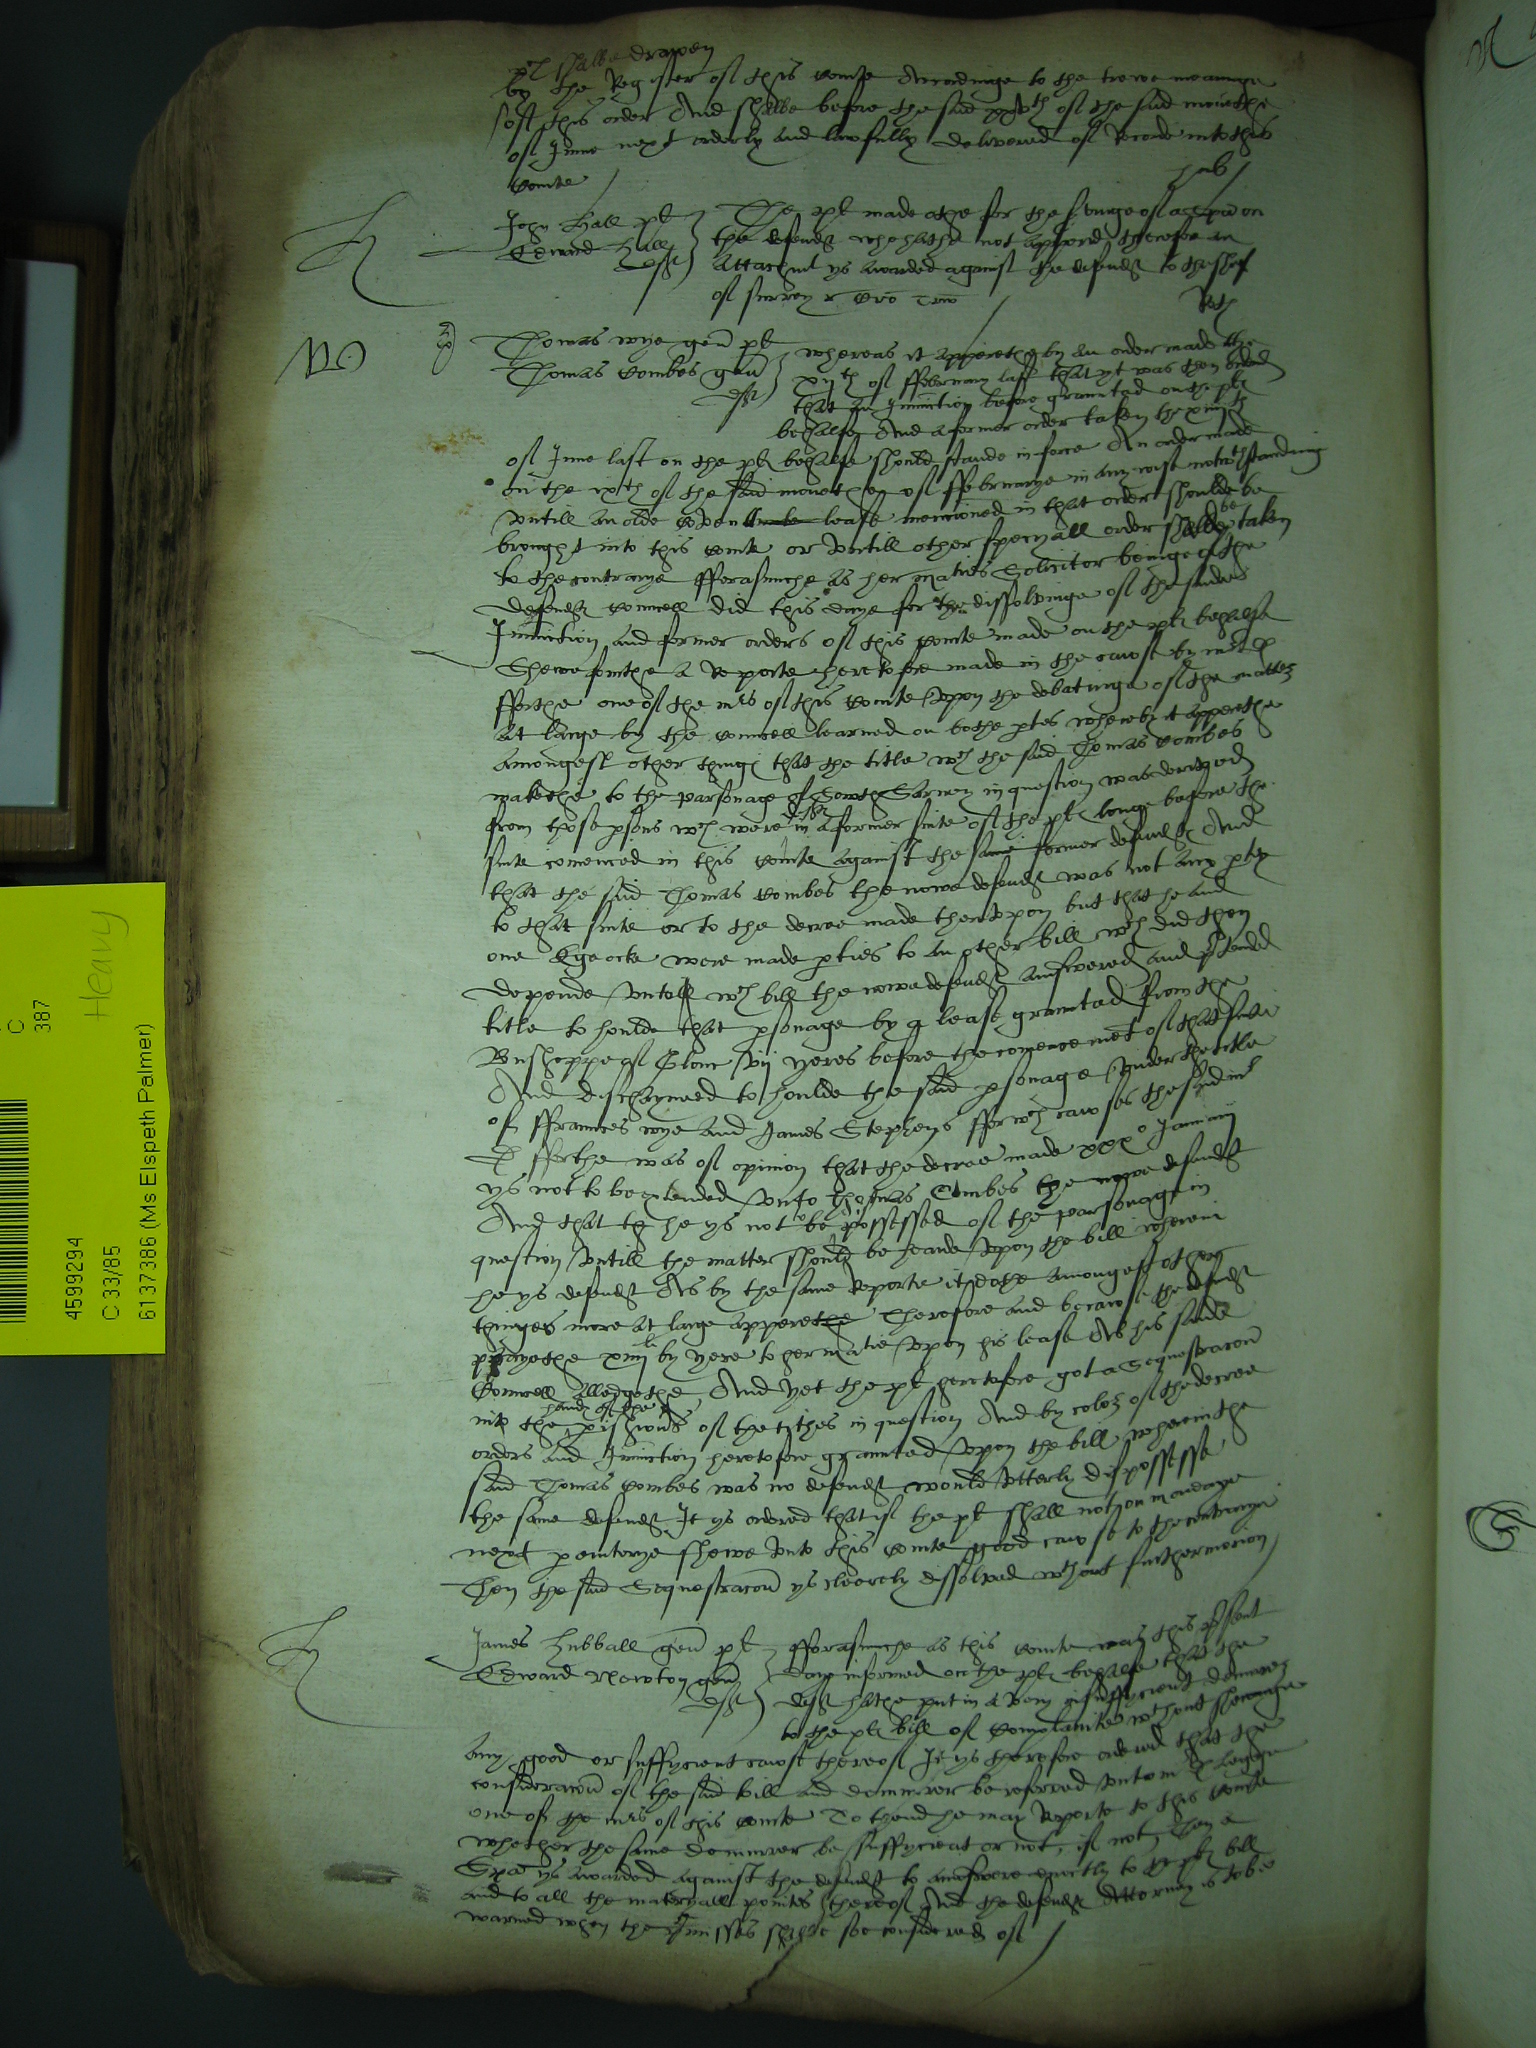 wch shalbe drawen
by the Register of this courte Accordinge to the trewe meaninge
of this order And shalbe before the said xxvth of the said monethe
of June next orderly and lawfully delivered of Recorde into this
courte /
John Hall plt
Edward Hall
deft
The plt made othe for the servinge of a spa on
the defendt who hathe not appered therefore an
attachmt ys awarded against the defendt to the shref
of surrey
H
W
Thomas wye gen plt
Thomas Combes gen
deft
whereas it apperethe by an order made the
xvijth of ffebruary last that yt was then ordred
that an Iniunction before graunted on the plts
behalfe And a former order taken the xiiijth
of June last on the plts behalfe should stande in force An order made
on the ixth of the said monethe of ffebruarye in any wise notwthstanding
untill an olde lease mencioned in that order shoulde be
brought into this courte or untill other specyall order shulde be taken
to the contrarye fforasmuche as her maties Solicitor beinge of the
defendts councell did this daye for the dissolvinge of the saide
Iniunction and former orders of this courte made on the plts behalfe
Shewe forthe a Reporte heretofore made in the cawse by mr D
fforthe one of the mrs of this courte upon the debatinge of the matter
at large by the councell learned on bothe ptes whereby it apperethe
amongest other things that the title wch the said Thomas Combes
makethe to the parsonage of Sowth in question was deryved
from those psons wch were defts in a former suite of the plts longe before the
suite comenced in this courte against the same former defendts And
that the said Thomas Combes the nowe defendt was not any ptye
to that suite or to the decree made therupon but that he and
one were made pties to an other bill wch did then
depende untoll wch bill the nowe defendt answered and ptended
title to houlde that psonage by a lease graunted from the
Busshoppe of Glouc vij yeres before the comencement of that suite
And disclaymed to houlde the said psonage under the title
of ffraunces wye and James Stephens ffor wch cawses the said mr
D fforthe was of opinion that the decree made xxxo Januarij
ys not to be extended unto Thomas Combes the nowe defendt
And that he ys not to be dispossessed of the parsonage in
question untill the matter should be hearde upon the bill wherein
he ys defendt As by the same reporte it dothe amongest other
thinges more at large appere Therefore and because the defendt
payethe xiiijli by yere to her matie upon his lease As his saide
Councell alledgethe And yet the plt heretofore got a Sequestracon
into the hands of the pishons of the tithes in question And by color of the decree
orders and Iniunction heretofore graunted upon the bill wherein the
said Thomas Combes was no defendt would utterly dispossesse
the same defendt It ys ordered that if the plt shall not on mondaye
next pemtorye shewe unto this courte good cawse to the contrarye
Then the said Sequestracon ys cleerely dissolved wthout further motion /
H
James Hubball gen plt
Edward Newton gen
deft
fforasmuche as this courte was this psent
daye informed on the plts behalfe that the
deft hathe put in a very insuffycient demurrer
to the plts bill of Complainte wthout shewinge
any good or suffycient cawse thereof It ys therefore ordered that the
consideracon of the said bill and demurrer be referred unto mr D
one of the mrs of this courte To thend he may Reporte to this courte
whether the same demurrer be suffycient or not, if not, then a
Spa ys awarded against the defendt to answere directly to the plts bill
and to all the materyall pointes thereof And the defendts Attorney is to be
warned when the pmisses shalbe soe considered of /
4599294
C 33/85
6137386 (Ms Elspeth Palmer)
C
387
Heavy